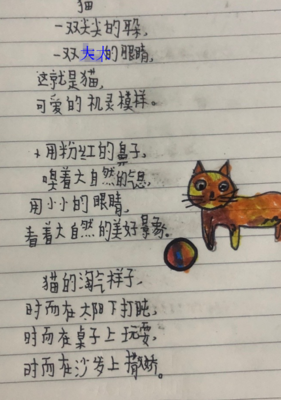 猫
一双尖尖的朵,
一双大的眼睛,
这就是猫,
可爱的机灵模样。
用粉红的鼻子,
嗅着大自然的气息,
用小小的眼睛,
看着大自然的美好景象。
猫的淘气样子,
时而在太阳下打盹,
时而在桌子上玩耍,
时而在沙发上撒娇。